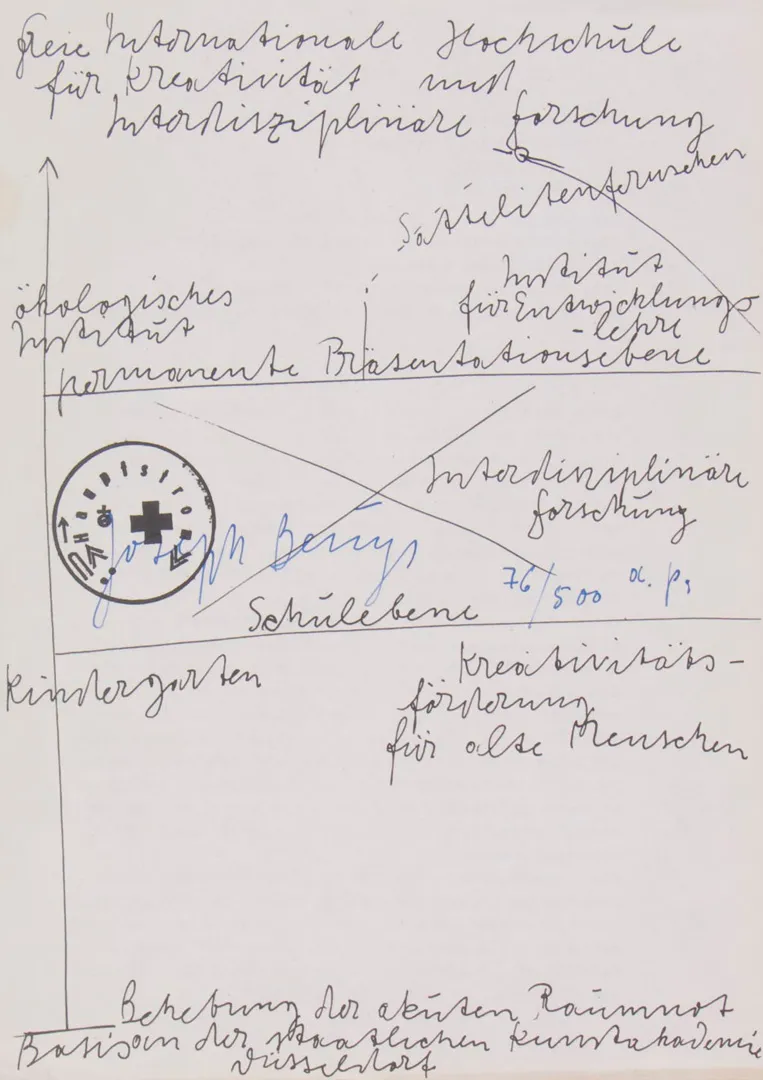 freie Internationale Hochschule
für Kreativität und
Interdisziplinäre forschung
Sattelitenfernsehen
Institut
für Entwicklungs
-lehre
ökologisches
Institut
permanente Präsentationsebene
Hauptstrom
Interdisziplinäre
forschung
Joseph Beuys
76/500 a. p.
Schulebene
Kindergarten
Kreativitäts-
förderung
für alte Menschen
Behebung der akuten Raumnot
Basis an der staatlichen Kunstakademie
Düsseldorf